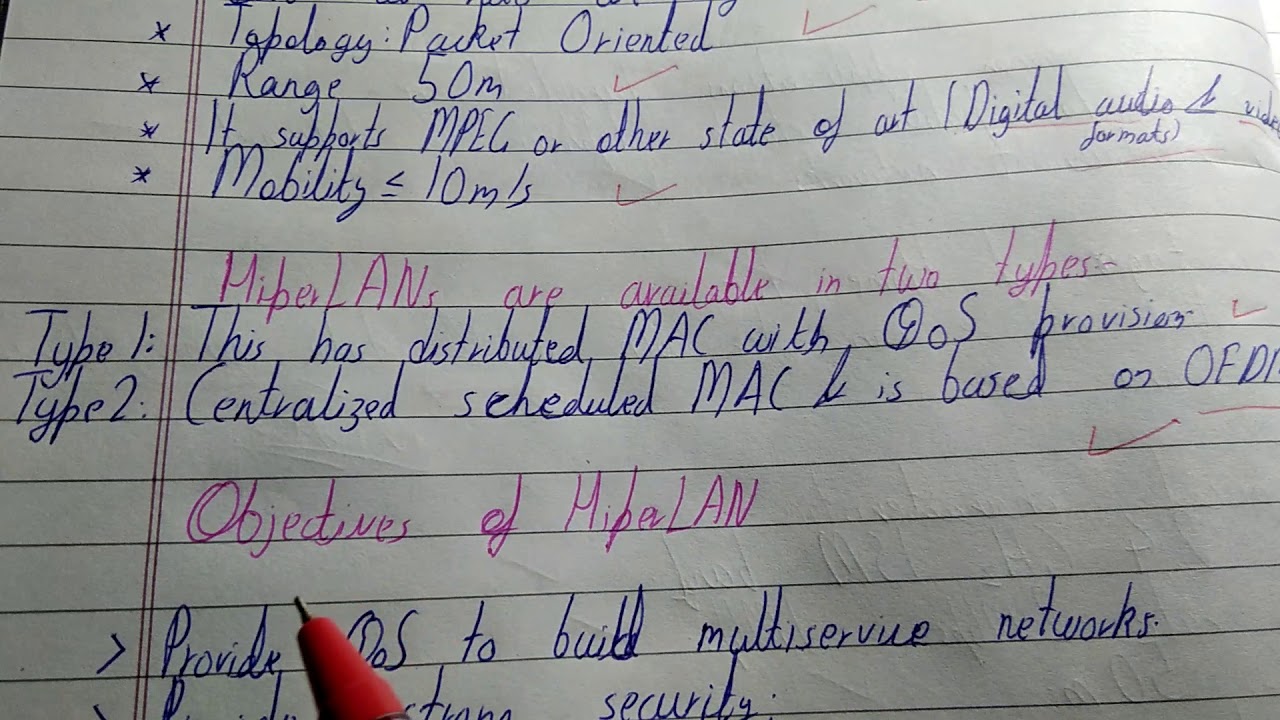 * Topology: Packet Oriented
* Range 50m
* It supports MPEG or other state of art (Digital audio & video
formats)
* Mobility ≤ 10m/s
HiperLANs are available in two types-
Type 1: This has distributed MAC with QoS provision
Type 2: Centralized scheduled MAC & is based on OFDM
Objectives of HiperLAN
> Provide QoS to build multiservice networks.
> strong security.